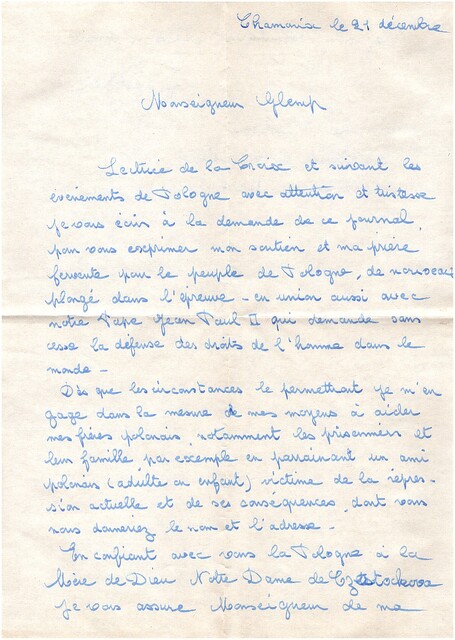 Chamarix le 21 décembre
Monseigneur Glemp
Lectrice de la Croix et suivant les
événements de Pologne avec attention et tristesse
je vous écris à la demande de ce journal,
pour vous exprimer mon soutien et ma prière
fervente pour le peuple de Pologne, de nouveau
plongé dans l'épreuve - en union aussi avec
notre Pape Jean Paul II qui demande sans
cesse la défense des droits de l'homme dans le
monde -
Dès que les circonstances le permettront je m'en
gage dans la mesure de mes moyens à aider
mes frères polonais, notamment les prisonniers et
leur famille par exemple en parrainant un ami
polonais (adulte ou enfant) victime de la répres-
sion actuelle et de ses conséquences, dont vous
nous donneriez le nom et l'adresse -
En confiant avec vous la Pologne à la
Mère de Dieu Notre Dame de
je vous assure Monseigneur de ma